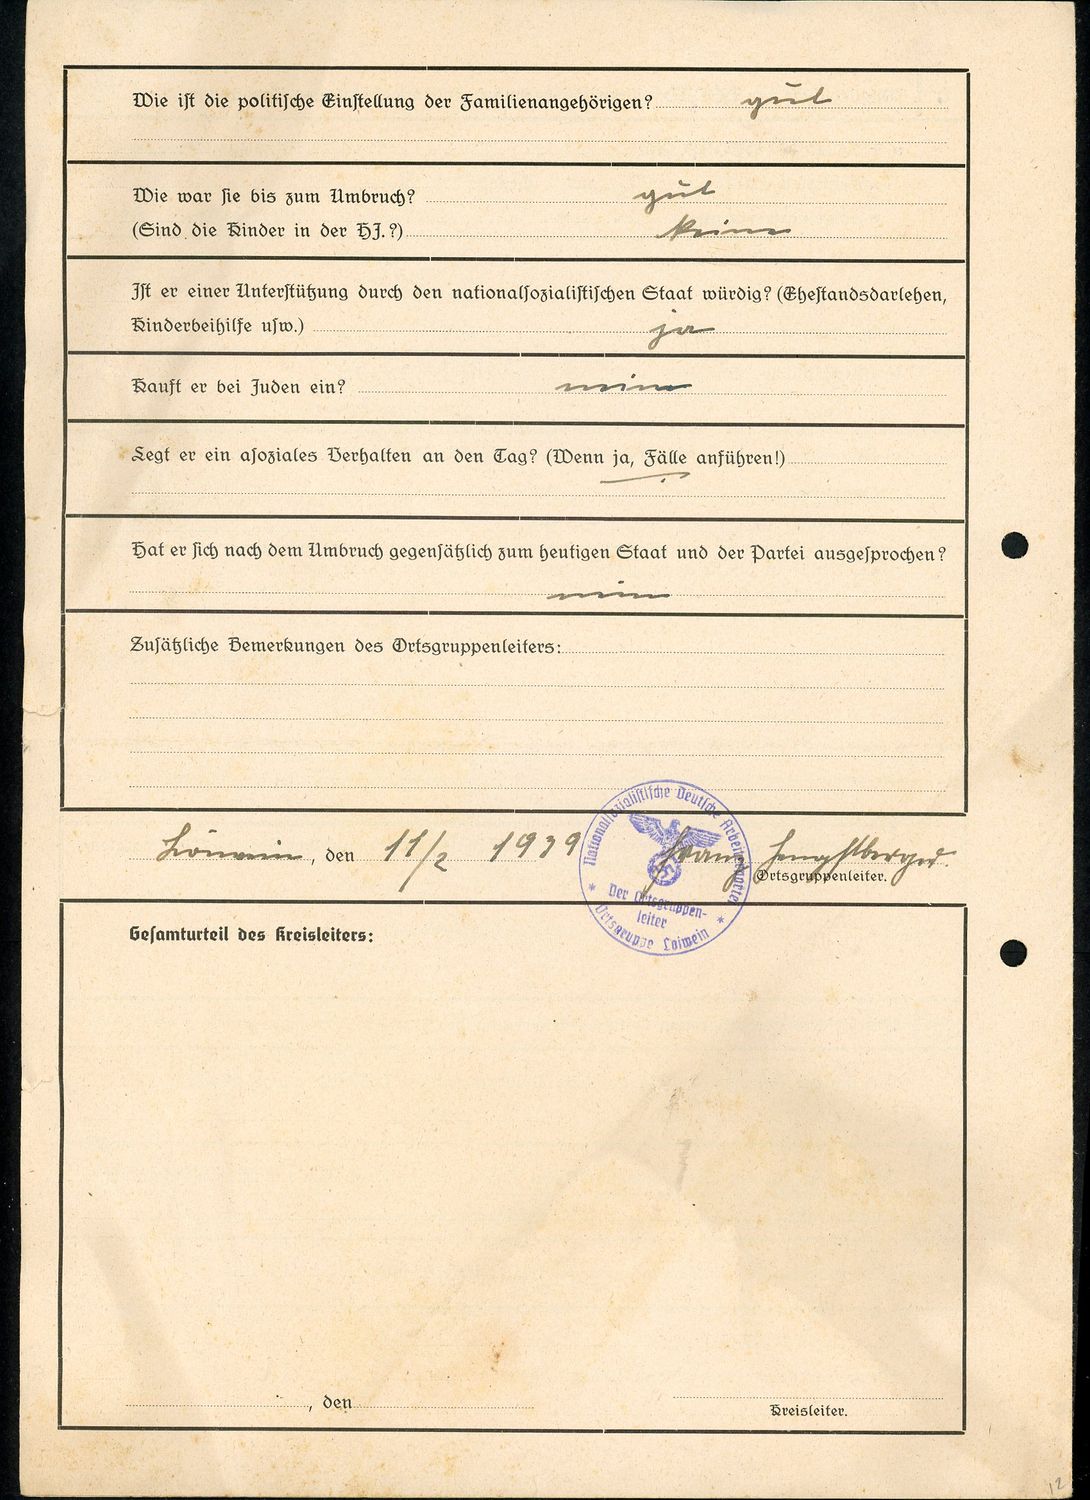 Wie ist die politische Einstellung der Familienangehörigen? gut
Wie war sie bis zum Umbruch? gut
(Sind die Kinder in der HJ.?) keine
Ist er einer Unterstützung durch den nationalsozialistischen Staat würdig? (Ehestandsdarlehen,
Kinderbeihilfe usw.) ja
Kauft er bei Juden ein? nein
Legt er ein asoziales Verhalten an den Tag? (Wenn ja, Fälle anführen!)
Hat er sich nach dem Umbruch gegensätzlich zum heutigen Staat und der Partei ausgesprochen?
nein
Zusätzliche Bemerkungen des Ortsgruppenleiters:
, den 11/2 1939 Franz
Ortsgruppenleiter.
Nationalsozialistische Deutsche Arbeiterpartei
Der Ortsgruppen-
leiter
Ortsgruppe Loiwein
Gesamturteil des Kreisleiters:
, den
Kreisleiter.
12